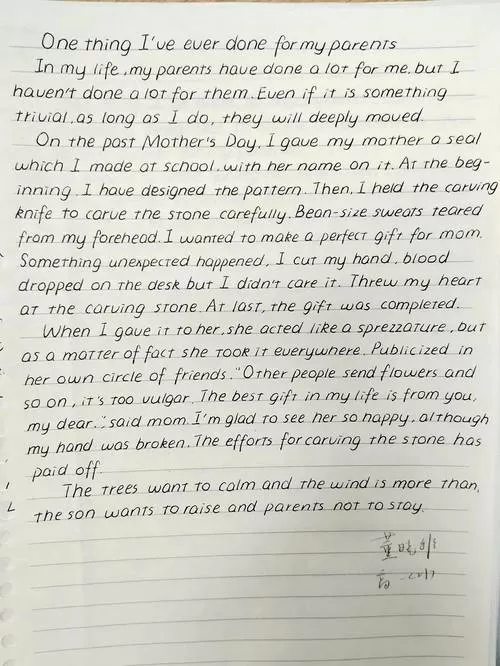 One thing I've ever done for my parents
In my life, my parents have done a lot for me, but I
haven't done a lot for them. Even if it is something
trivial, as long as I do, they will deeply moved.
On the past Mother's Day, I gave my mother a seal
which I made at school, with her name on it. At the beg-
inning, I have designed the pattern. Then, I held the carving
knife to carve the stone carefully. Bean-size sweats teared
from my forehead. I wanted to make a perfect gift for mom.
Something unexpected happened, I cut my hand, blood
dropped on the desk but I didn't care it. Threw my heart
at the carving stone. At last, the gift was completed.
When I gave it to her, she acted like a sprezzature, but
as a matter of fact she took it everywhere. Publicized in
her own circle of friends. "Other people send flowers and
so on, it's too vulgar. The best gift in my life is from you,
my dear.", said mom. I'm glad to see her so happy, although
my hand was broken. The efforts for carving the stone has
paid off.
The trees want to calm and the wind is more than,
the son wants to raise and parents not to stay.